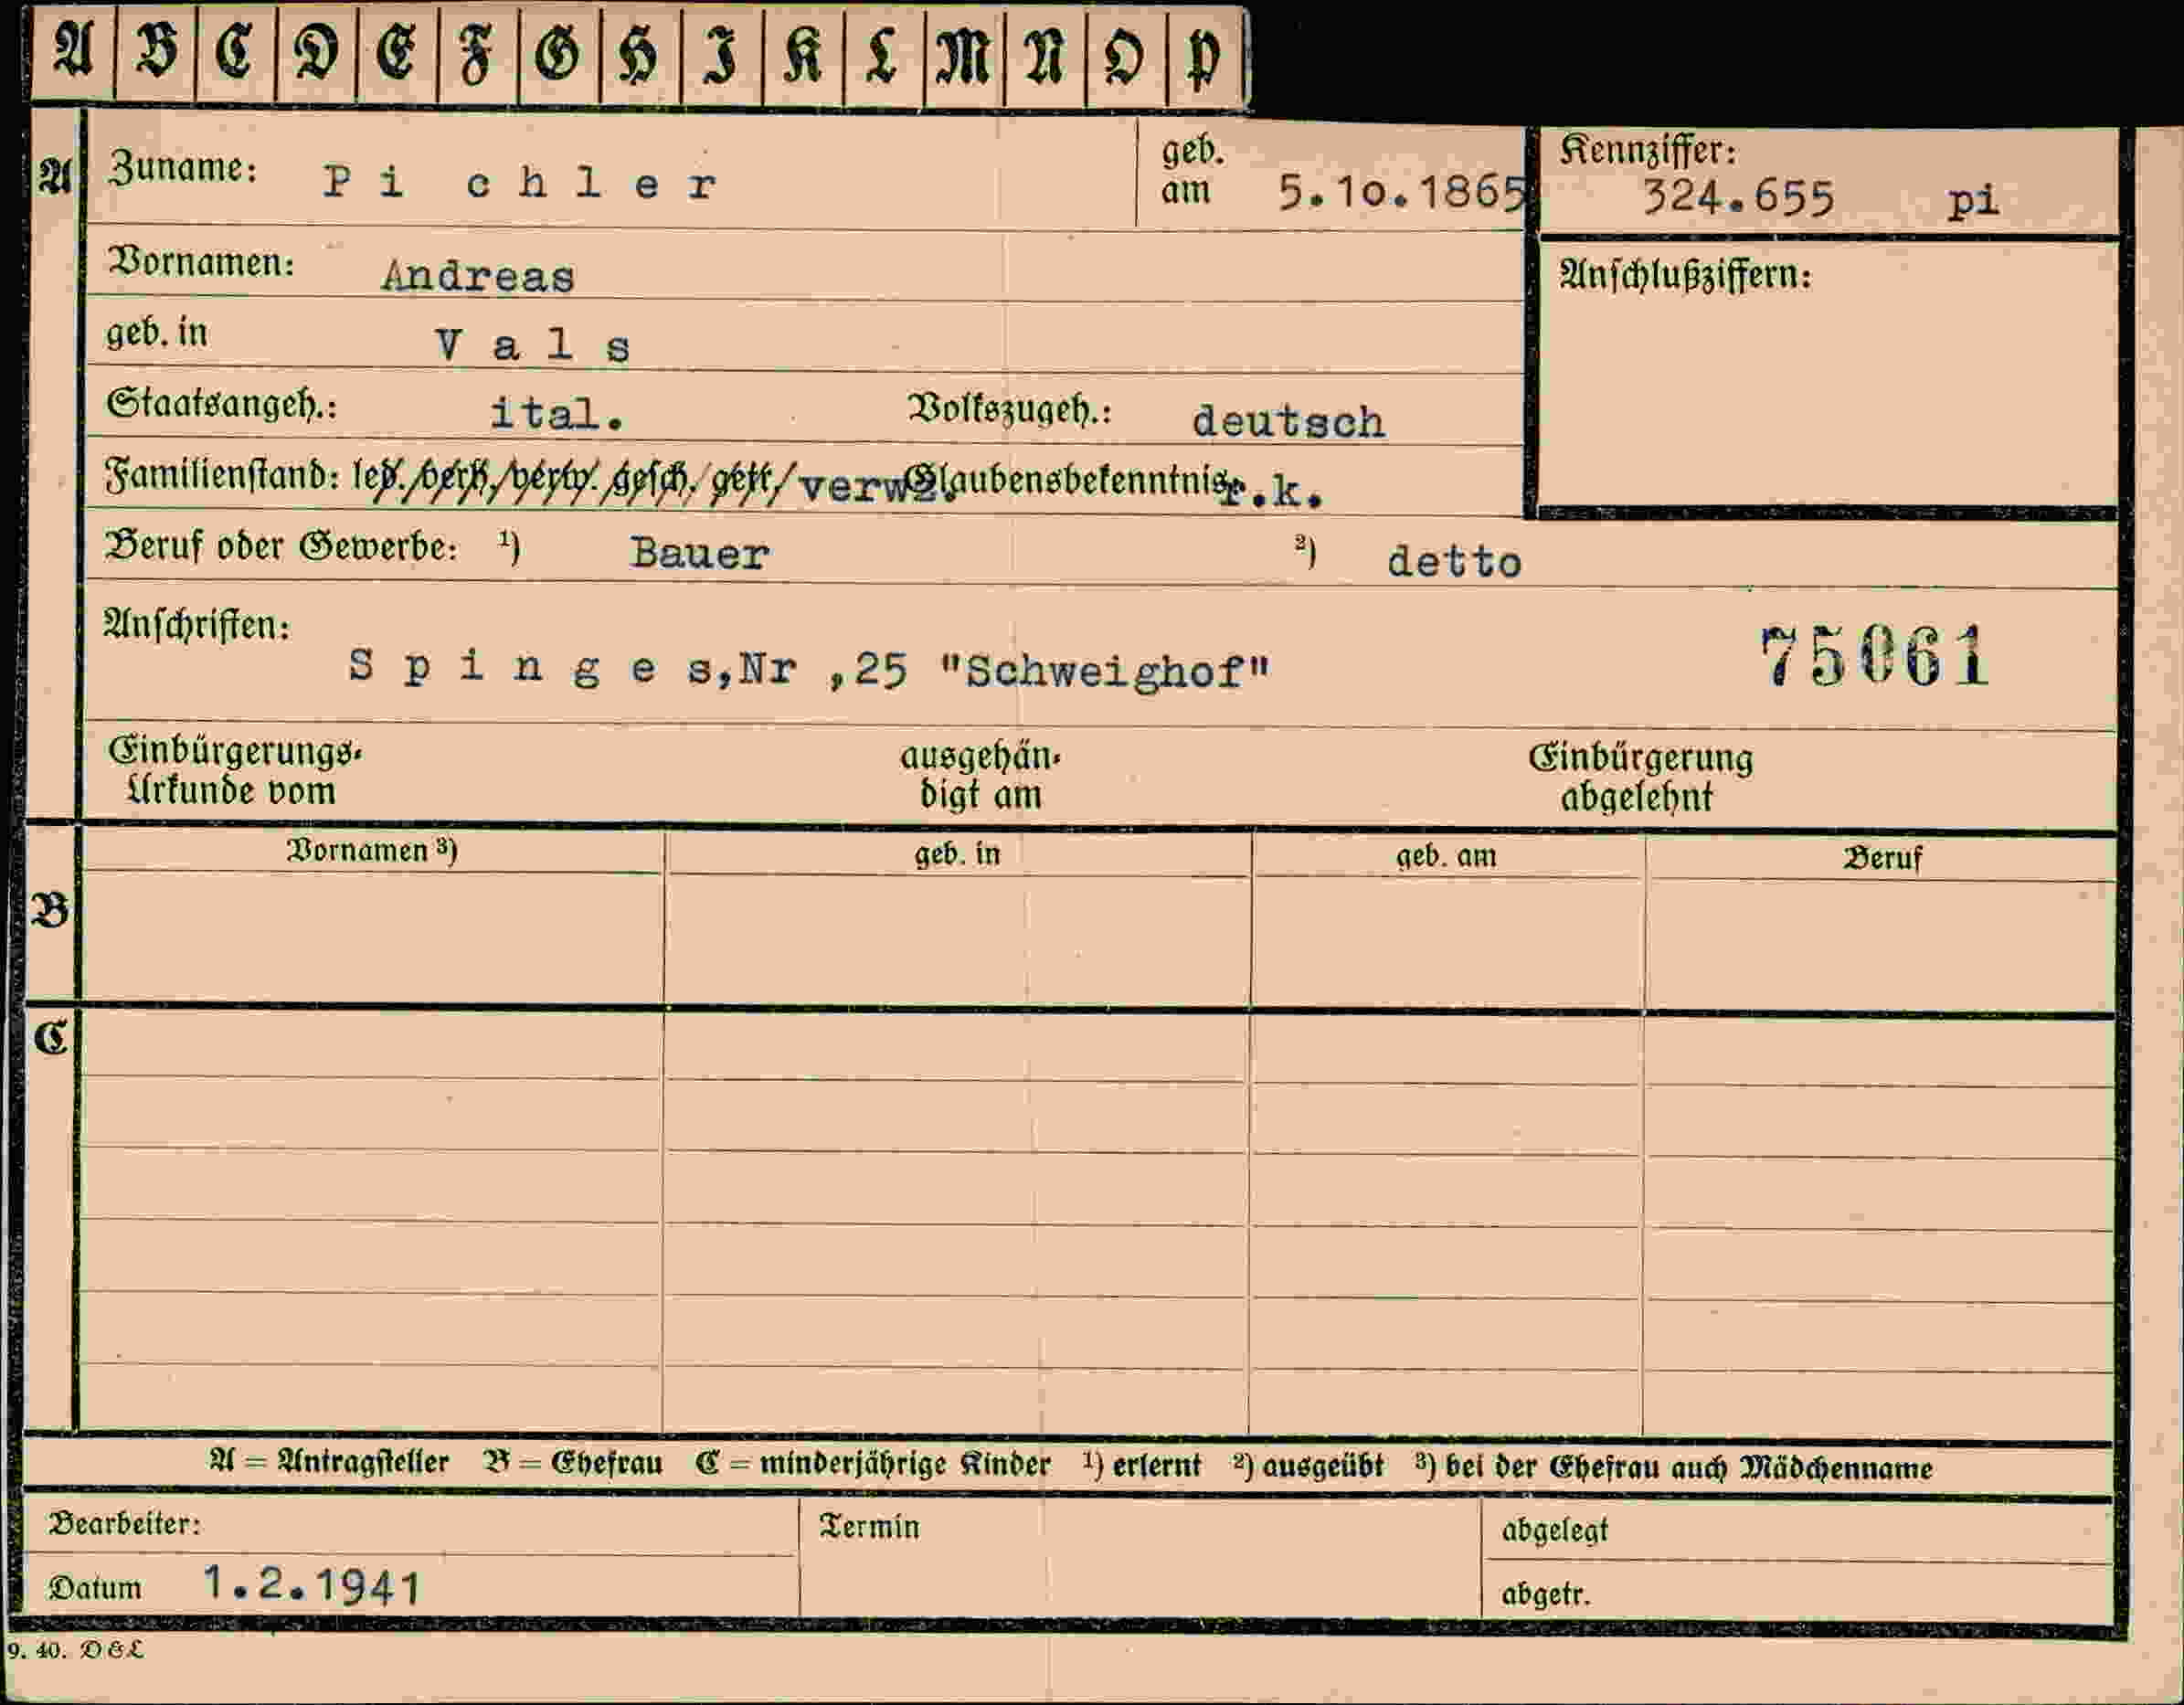 A B C D E F G H I K L M N O P
A Zuname: P i c h l e r geb. am 5.10.1865 Kennziffer: 324.655 pi
Vornamen: Andreas Anschlußziffern:
geb. in V a l s
Staatsangeh.: ital. Volkszugeh.: deutsch
Familienstand: led./verh./verw./gesch./getr./ verw. Glaubensbekenntnis: r.k.
Beruf oder Gewerbe: ¹) Bauer ²) detto
Anschriften:
S p i n g e s,Nr ,25 "Schweighof" 75061
Einbürgerungs-
Urkunde vom
ausgehän-
digt am
Einbürgerung
abgelehnt
Vornamen ³) geb. in geb. am Beruf
B
C
A = Antragsteller B = Ehefrau C = minderjährige Kinder ¹) erlernt ²) ausgeübt ³) bei der Ehefrau auch Mädchenname
Bearbeiter: Termin abgelegt
Datum 1.2.1941 abgetr.
9. 40. D&L